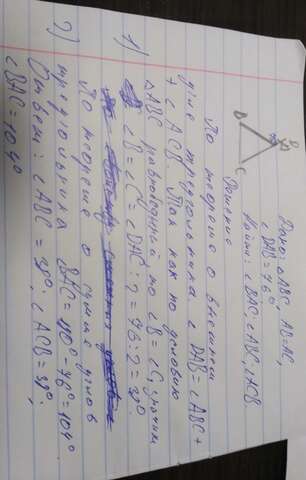 Дано: △ABC, AB=AC,
∠DAB=76°
Найти: ∠BAC, ∠ABC, ∠ACB
D
A
B
C
Решение
1) По теореме о внешнем
угле треугольника ∠DAB=∠ABC+
+∠ACB. Так как по условию
△ABC равнобедренный, то ∠B=∠C, значит
∠B=∠C=∠DAB:2=76:2=38°
2) По теореме о сумме углов
треугольника ∠BAC=180°-76°=104°
Ответ: ∠ABC=38°; ∠ACB=38°;
∠BAC=104°